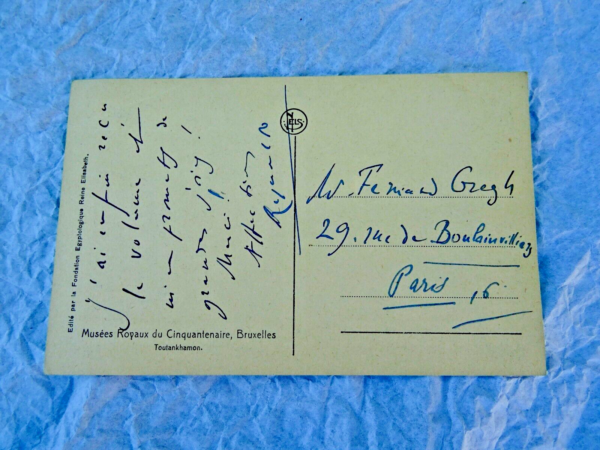 J'ai enfin reçu
le volume et
m'en promets de
grandes joies !
Merci !
Affection
Edité par la Fondation Egyptologique Reine Elisabeth.
Musées Royaux du Cinquantenaire, Bruxelles
Toutankhamon.
NELS
M. Fernand Gregh
29. rue de Boulainvilliers
Paris, 16